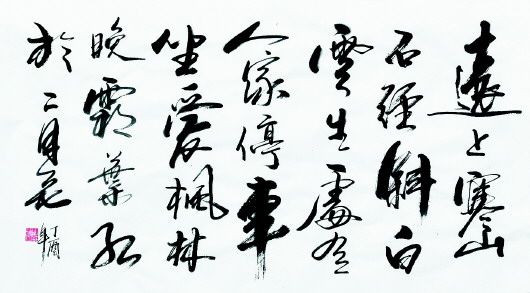 遠上寒山
石徑斜白
雲生處有
人家停車
坐愛楓林
晚霜葉紅
於二月花
丁酉年